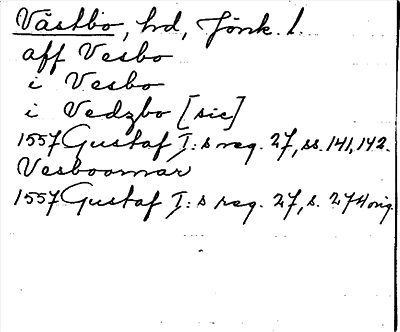 Västbo, hd, Jönk. l.
aff Vesbo
i Vesbo
i Vedzbo [sic]
1557 Gustaf I:s reg. 27, ss. 141, 142.
Vesboomar
1557 Gustaf I:s reg. 27, s. 274 orig.